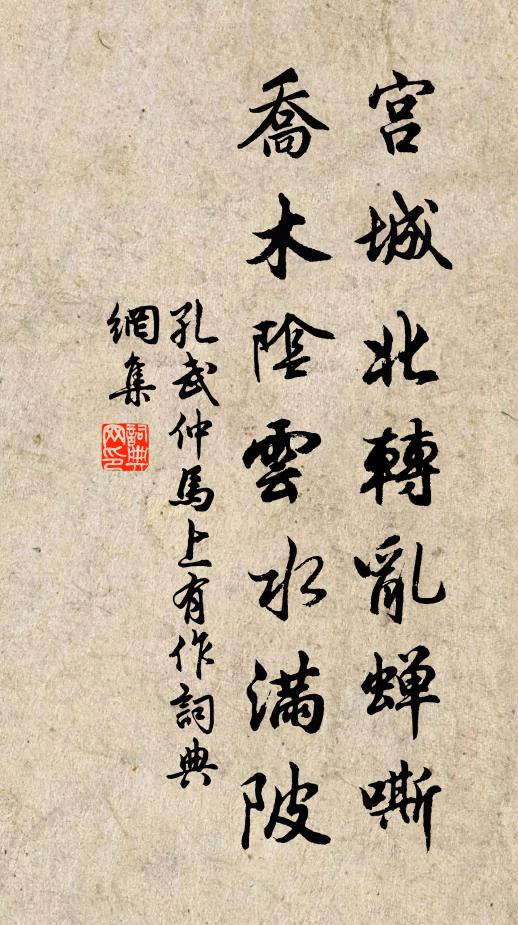 宫城北轉亂蟬嘶
喬木陰雲水滿陂
孔武仲馬上有作詞典
網集
詞典
网印